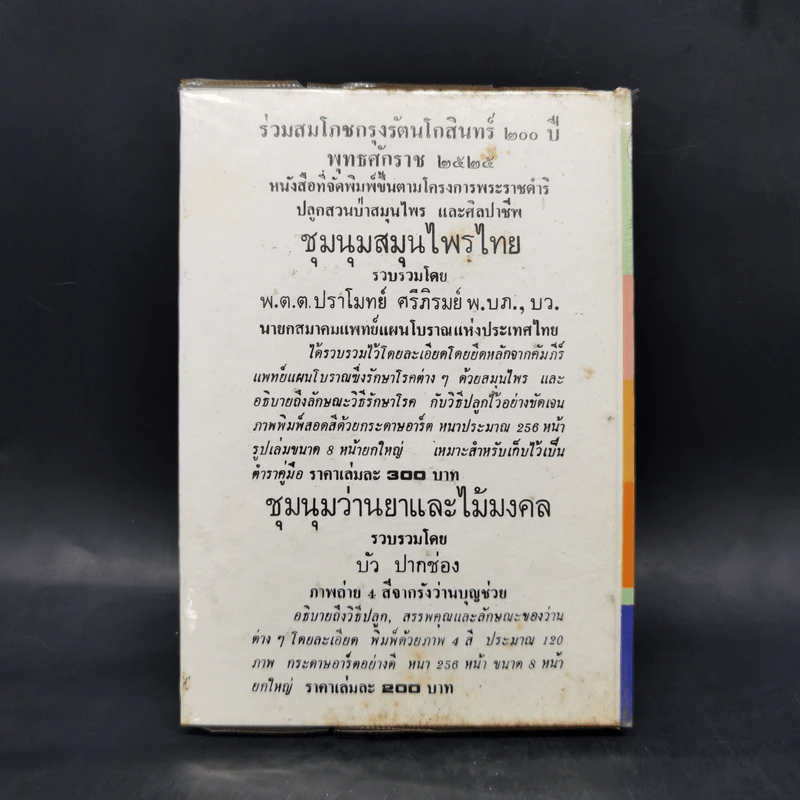 ร่วมสมโภชกรุงรัตนโกสินทร์ ๒๐๐ ปี
พุทธศักราช ๒๕๒๕
หนังสือที่จัดพิมพ์ขึ้นตามโครงการพระราชดำริ
ปลูกสวนป่าสมุนไพร และศิลปาชีพ
ชุมนุมสมุนไพรไทย
รวบรวมโดย
พ.ต.ต. ปราโมทย์ ศรีภิรมย์ พ.บภ., บว.
นายกสมาคมแพทย์แผนโบราณแห่งประเทศไทย
ได้รวบรวมไว้โดยละเอียดโดยยึดหลักจากคัมภีร์
แพทย์แผนโบราณซึ่งรักษาโรคต่าง ๆ ด้วยสมุนไพร และ
อธิบายถึงลักษณะวิธีรักษาโรค กับวิธีปลูกไว้อย่างชัดเจน
ภาพพิมพ์สอดสีด้วยกระดาษอาร์ต หนาประมาณ 256 หน้า
รูปเล่มขนาด 8 หน้ายกใหญ่ เหมาะสำหรับเก็บไว้เป็น
ตำราคู่มือ ราคาเล่มละ 300 บาท
ชุมนุมว่านยาและไม้มงคล
รวบรวมโดย
บัว ปากช่อง
ภาพถ่าย 4 สีจากรังว่านบุญช่วย
อธิบายถึงวิธีปลูก, สรรพคุณและลักษณะของว่าน
ต่าง ๆ โดยละเอียด พิมพ์ด้วยภาพ 4 สี ประมาณ 120
ภาพ กระดาษอาร์ตอย่างดี หนา 256 หน้า ขนาด 8 หน้า
ยกใหญ่ ราคาเล่มละ 200 บาท